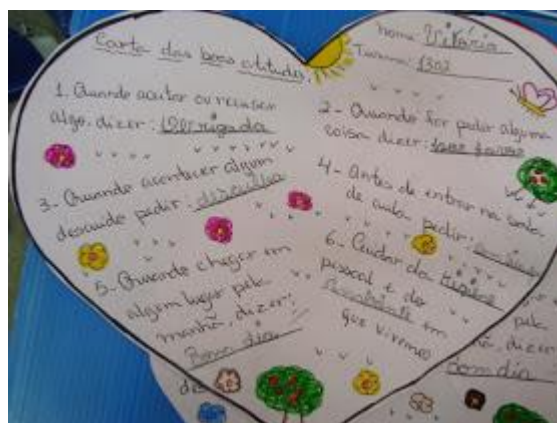 Carta das boas atitudes.
Nome: Vitória
Turma: 1302
1. Quando aceitar ou recusar
algo, dizer: Obrigada
2- Quando for pedir alguma
coisa dizer: por favor
3- Quando acontecer algum
descuido pedir: desculpa
4- Antes de entrar na sala
de aula, pedir:
5- Quando chegar em
algum lugar pela
manhã, dizer:
Bom dia
6- Cuidar da higiene
pessoal e do
ambiente em
que vivemos
pela
manhã, dizer
bom dia
de